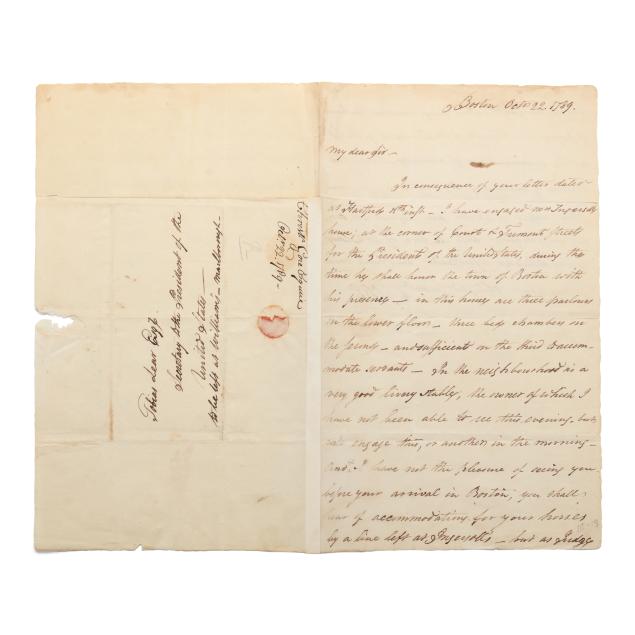 Boston Octr 22. 1789.
My dear Sir —
In consequence of your letter dated
at Hartford 18th inst. — I have engaged Mrs Ingersoll's
house, at the corner of Court & Tremont Streets
for the President of the United States, during the
time he shall honor the town of Boston with
his presence — in this house are three parlours
on the lower floor — three bed chambers on
the second — and sufficient on the third to accom-
modate servants — In the neighbourhood is a
very good livery stable, the owner of which I
have not been able to see this evening, but
will engage this, or another in the morning —
I have not the pleasure of seeing you
before your arrival in Boston, you shall
hear of accommodations for your horses
by a line left at Ingersoll's — but as Judge
Tobias Lear Esqr.
Secretary to the President of the
United States —
to be left at Williams's — Marlborough —
Octr 22. 1789 —